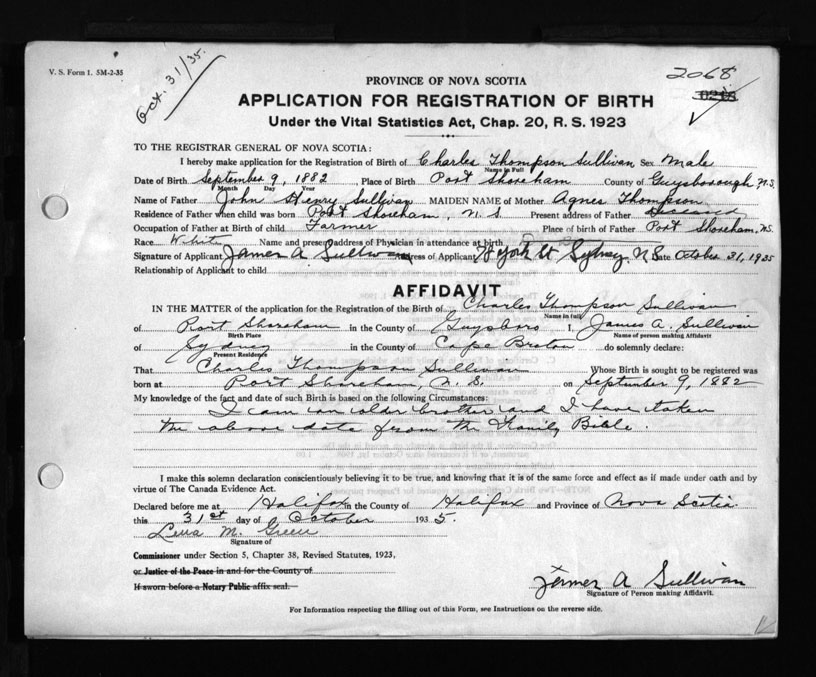 V. S. Form 1. 5M-2-35
Oct. 31/35.
2068
PROVINCE OF NOVA SCOTIA
APPLICATION FOR REGISTRATION OF BIRTH
Under the Vital Statistics Act, Chap. 20, R. S. 1923
TO THE REGISTRAR GENERAL OF NOVA SCOTIA:
I hereby make application for the Registration of Birth of Charles Thompson Sullivan Sex Male
Name in Full
Date of Birth September 9, 1882 Place of Birth Port Shoreham County of Guysborough N.S.
Month Day Year
Name of Father John Henry Sullivan MAIDEN NAME of Mother Agnes Thompson
Residence of Father when child was born Port Shoreham, N. S. Present address of Father Deceased
Occupation of Father at Birth of child Farmer Place of birth of Father Port Shoreham, N.S.
Race White Name and present address of Physician in attendance at birth
Signature of Applicant James A. Sullivan Address of Applicant York St Sydney N.S. Date October 31, 1935
Relationship of Applicant to child
AFFIDAVIT
IN THE MATTER of the application for the Registration of the Birth of Charles Thompson Sullivan
Name in full
of Port Shoreham in the County of Guysboro I, James A. Sullivan
Birth Place Name of person making Affidavit
of Sydney in the County of Cape Breton do solemnly declare:
Present Residence
That Charles Thompson Sullivan Whose Birth is sought to be registered was
born at Port Shoreham, N. S. on September 9, 1882
My knowledge of the fact and date of such Birth is based on the following Circumstances:
I am an older brother and I have taken
the above date from the Family Bible.
I make this solemn declaration conscientiously believing it to be true, and knowing that it is of the same force and effect as if made under oath and by
virtue of The Canada Evidence Act.
Declared before me at Halifax in the County of Halifax and Province of Nova Scotia
this 31st day of October 1935.
M. Green
Signature of
Commissioner under Section 5, Chapter 38, Revised Statutes, 1923,
or Justice of the Peace in and for the County of
If sworn before a Notary Public affix seal.
James A Sullivan
Signature of Person making Affidavit.
For Information respecting the filling out of this Form, see Instructions on the reverse side.